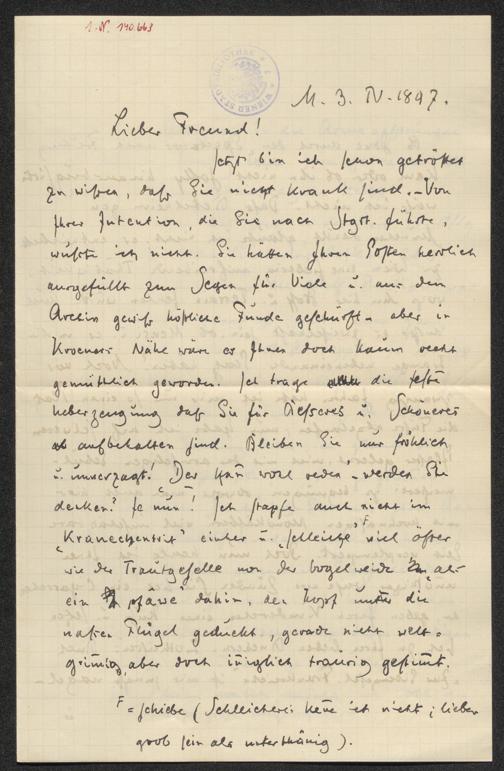 I.N. 140.663
WIENER STADTBIBLIOTHEK
M. 3. IV. 1897.
Lieber Freund!
Jetzt bin ich schon getröstet
zu wissen, daß Sie nicht krank sind. – Von
Ihrer Intention, die Sie nach Stgrt. führte,
wußte ich nicht. Sie hätten Ihren Posten herrlich
ausgefüllt zum Segen für Viele u. aus dem
Archiv gewiß köstliche Funde geschürft – aber in
Nähe wäre es Ihnen doch kaum recht
gemüthlich geworden. Ich trage die feste
Ueberzeugung daß Sie für Tieferes u. Schöneres
aufbehalten sind. Bleiben Sie nur fröhlich
u. unverzagt! "Der kann wohl reden" – werden Sie
denken? Je nun! Ich stapfe auch nicht im
"Kranechentrit" einher u. "schleiche" F viel öfter
wie der Trautgeselle von der Vogelweide als
ein pfâwe" dahin, den Kopf unter die
nassen Flügel geduckt, gerade nicht welt-
grimmig, aber doch inniglich traurig gestimmt.
F = schiebe (Schleicherei kenne ich nicht; lieber
grob sein als unterthänig).